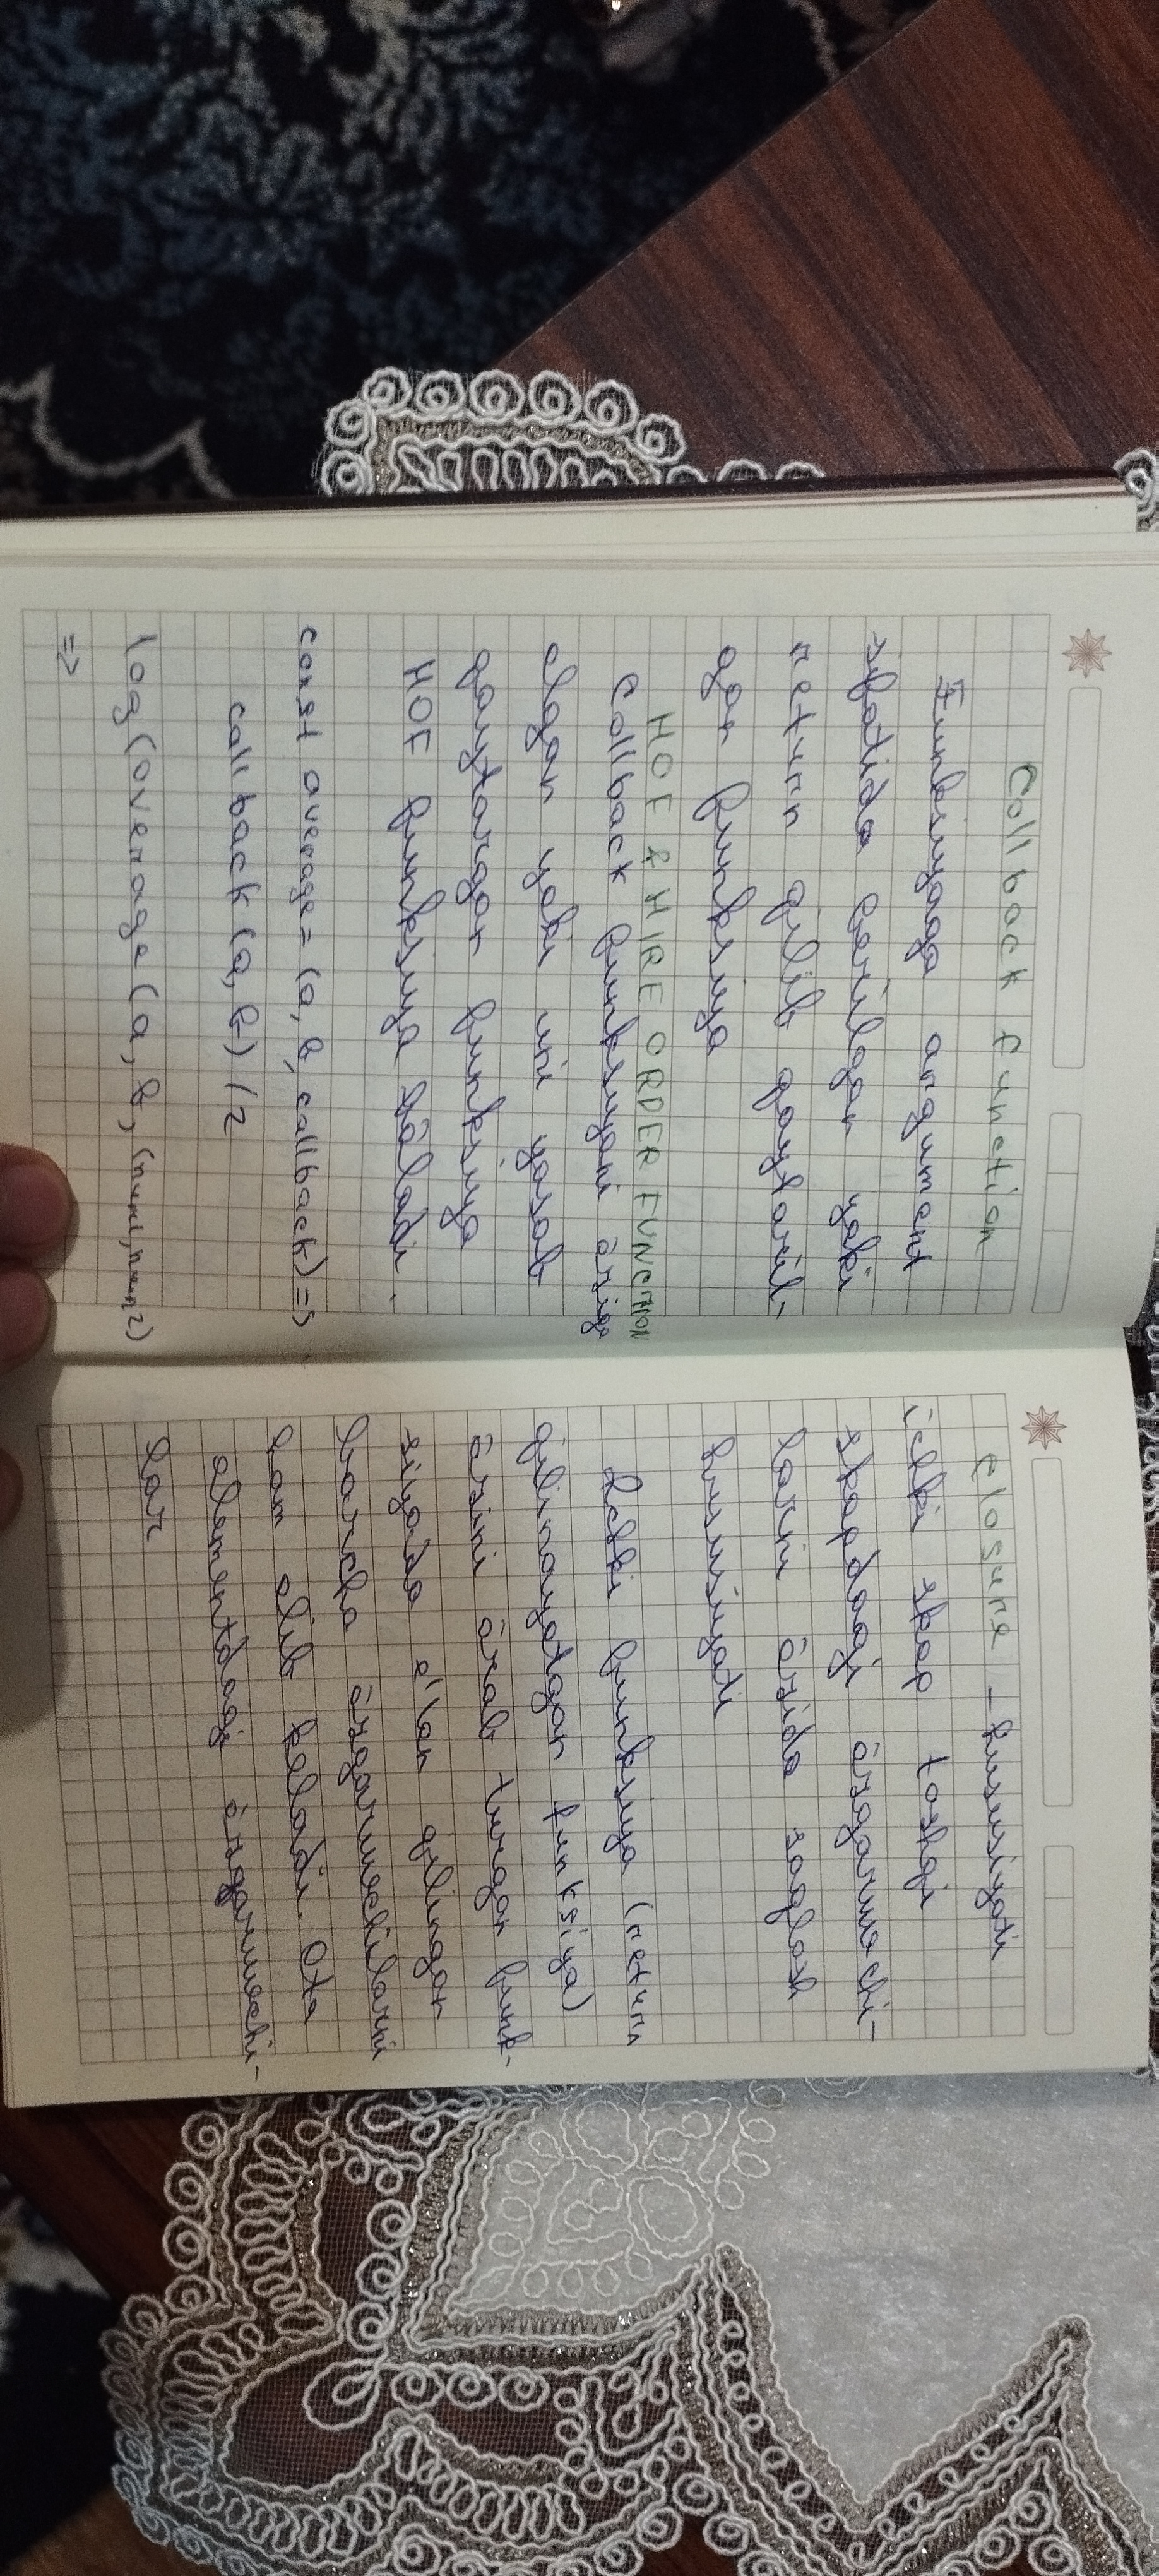 Callback function
Funksiyaga argument
sifatida berilgan yoki
return qilib qaytaril-
gan funksiya
HOF & HIRE ORDER FUNCTION
Callback funksiyani òziga
olgan yoki uni yasab
qaytargan funksiya
HOF funksiya bòladi.
const average = (a, b, callback) =>
callback (a, b) / 2
log (average (a, b, (num1, num2)
=>
Closure - hususiyati
ichki skop tashqi
skopdagi òzgaruvchi-
larni òzida saqlash
hususiyati
Ichki funksiya (return
qilinayotgan funksiya)
òzini òrab turgan funk-
siyada e'lon qilingan
barcha òzgaruvchilarni
ham olib keladi. Ota
elementdagi òzgaruvchi-
lar